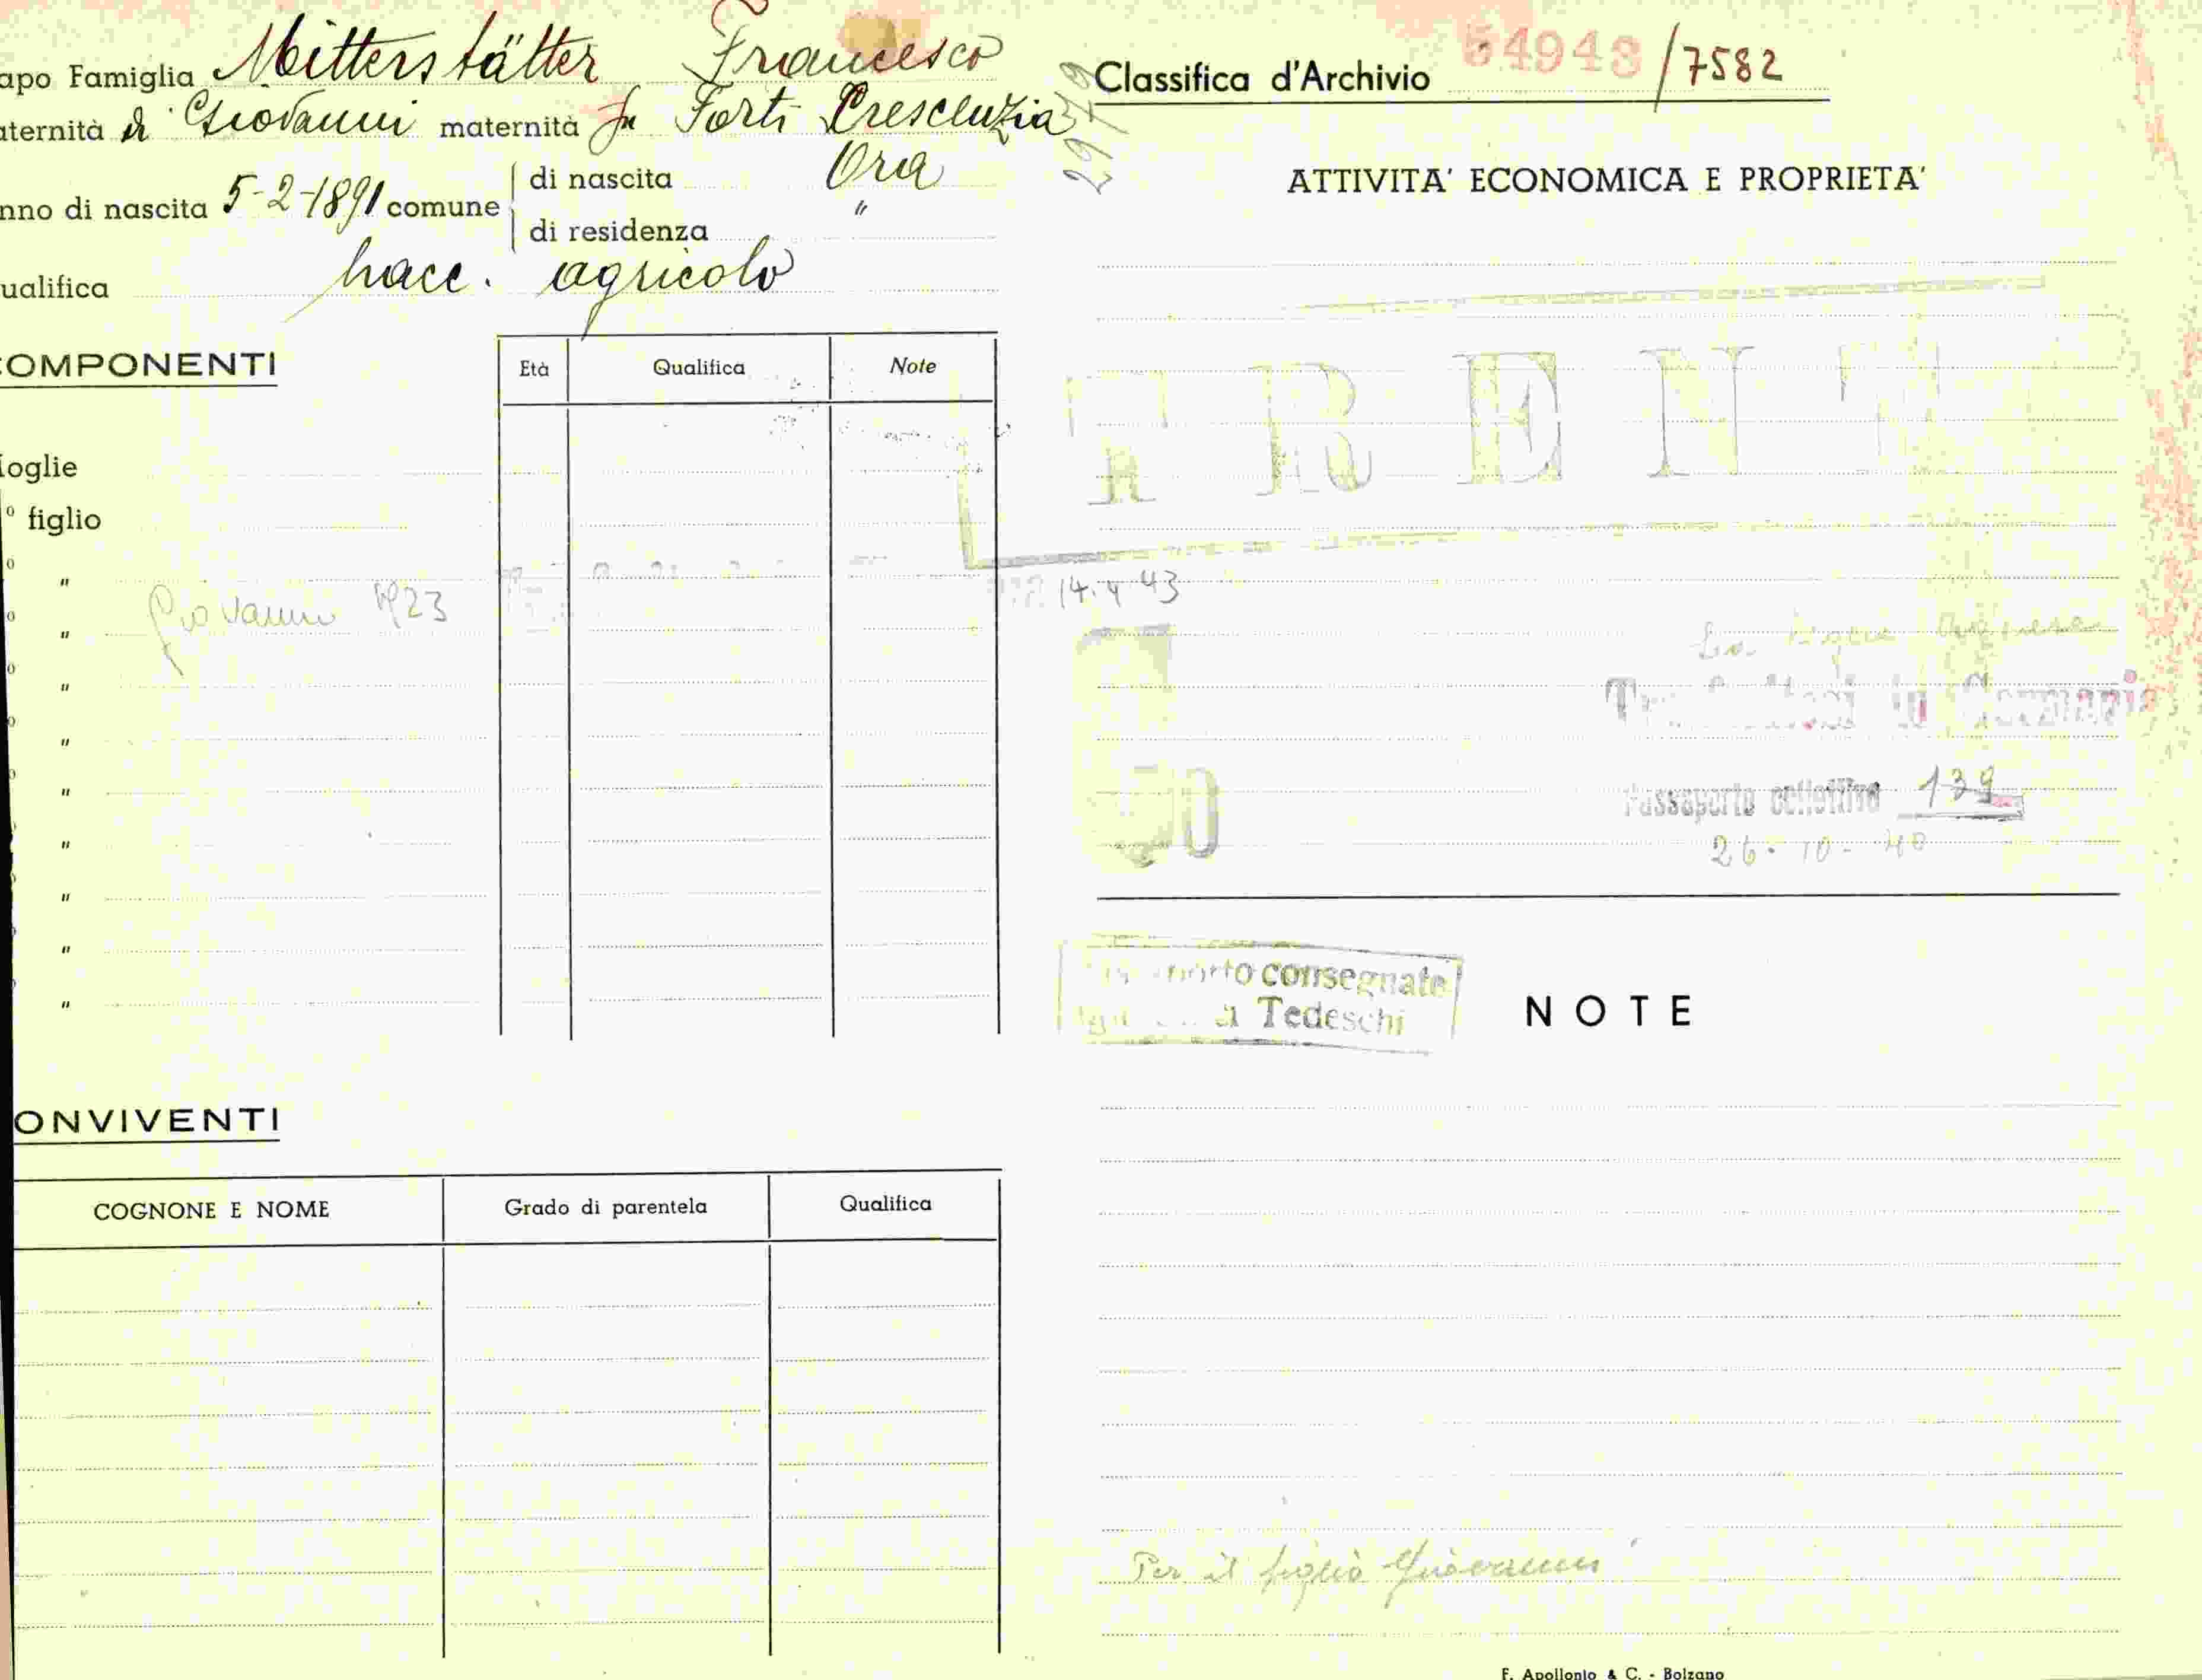 apo Famiglia Mitterstätter Francesco
aternità di Giovanni maternità fu Forti Crescenzia
nno di nascita 5-2-1891 comune
di nascita Ora
di residenza "
ualifica bracc. agricolo
OMPONENTI
Età Qualifica Note
oglie
° figlio
"
Giovanni 1923
"
"
"
"
"
"
"
"
ONVIVENTI
COGNONE E NOME Grado di parentela Qualifica
29729
Classifica d'Archivio 54943/7582
ATTIVITA' ECONOMICA E PROPRIETA'
TRENT
14.4.43
Trasferitosi in Germania
Passaporto collettivo 139
26-10-40
consegnato
Tedeschi
NOTE
Per il figlio Giovanni
F. Apollonio & C. - Bolzano